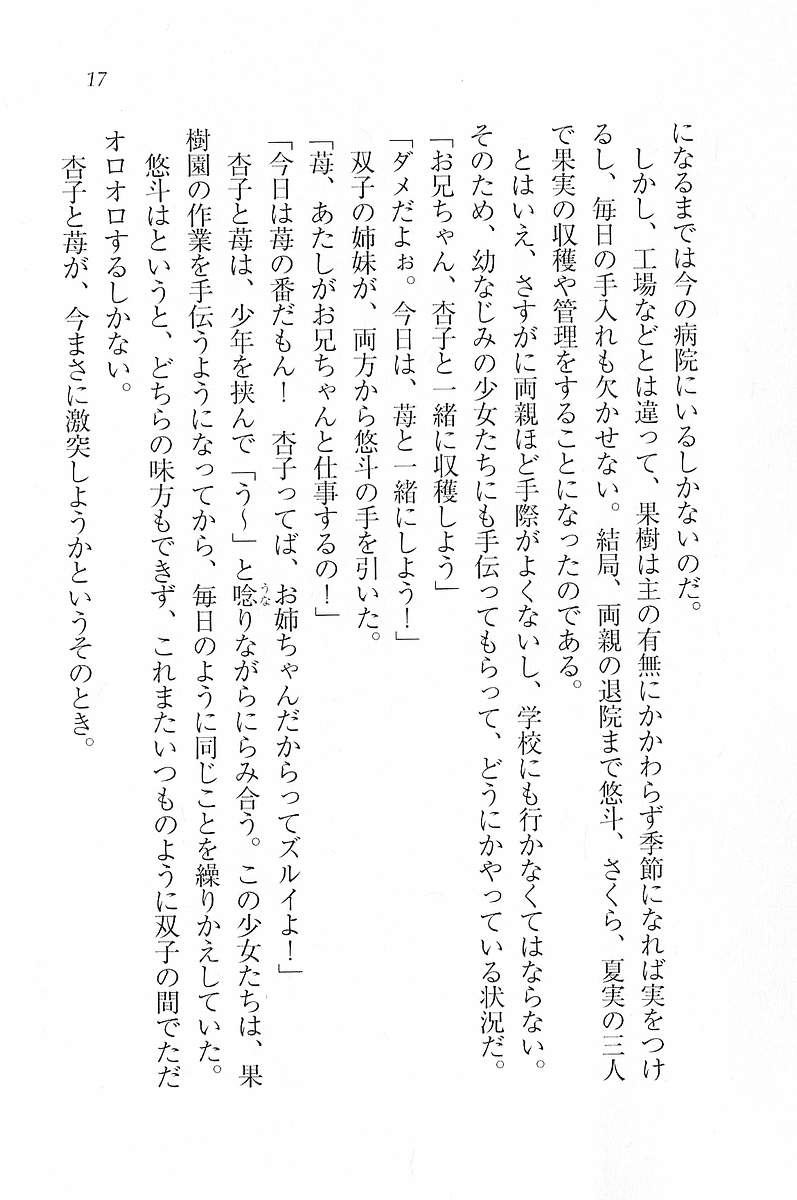 17
になるまでは今の病院にいるしかないのだ。
　しかし、工場などとは違って、果樹は主の有無にかかわらず季節になれば実をつけ
るし、毎日の手入れも欠かせない。結局、両親の退院まで悠斗、さくら、夏実の三人
で果実の収穫や管理をすることになったのである。
　とはいえ、さすがに両親ほど手際がよくないし、学校にも行かなくてはならない。
そのため、幼なじみの少女たちにも手伝ってもらって、どうにかやっている状況だ。
「お兄ちゃん、杏子と一緒に収穫しよう」
「ダメだよぉ。今日は、苺と一緒にしよう！」
　双子の姉妹が、両方から悠斗の手を引いた。
「苺、あたしがお兄ちゃんと仕事するの！」
「今日は苺の番だもん！　杏子ってば、お姉ちゃんだからってズルイよ！」
　杏子と苺は、少年を挟んで「う～」と唸うなりながらにらみ合う。この少女たちは、果
樹園の作業を手伝うようになってから、毎日のように同じことを繰りかえしていた。
　悠斗はというと、どちらの味方もできず、これまたいつものように双子の間でただ
オロオロするしかない。
　杏子と苺が、今まさに激突しようかというそのとき。